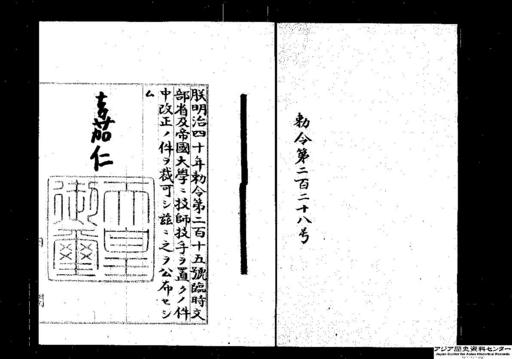 勅令第二百二十八号
朕明治四十年勅令第二百十五號臨時文
部省及帝國大學ニ技師技手ヲ置クノ件
中改正ノ件ヲ裁可シ茲ニ之ヲ公布セシ
ム
嘉仁
天皇
御璽
アジア歴史資料センター
Japan Center for Asian Historical Records